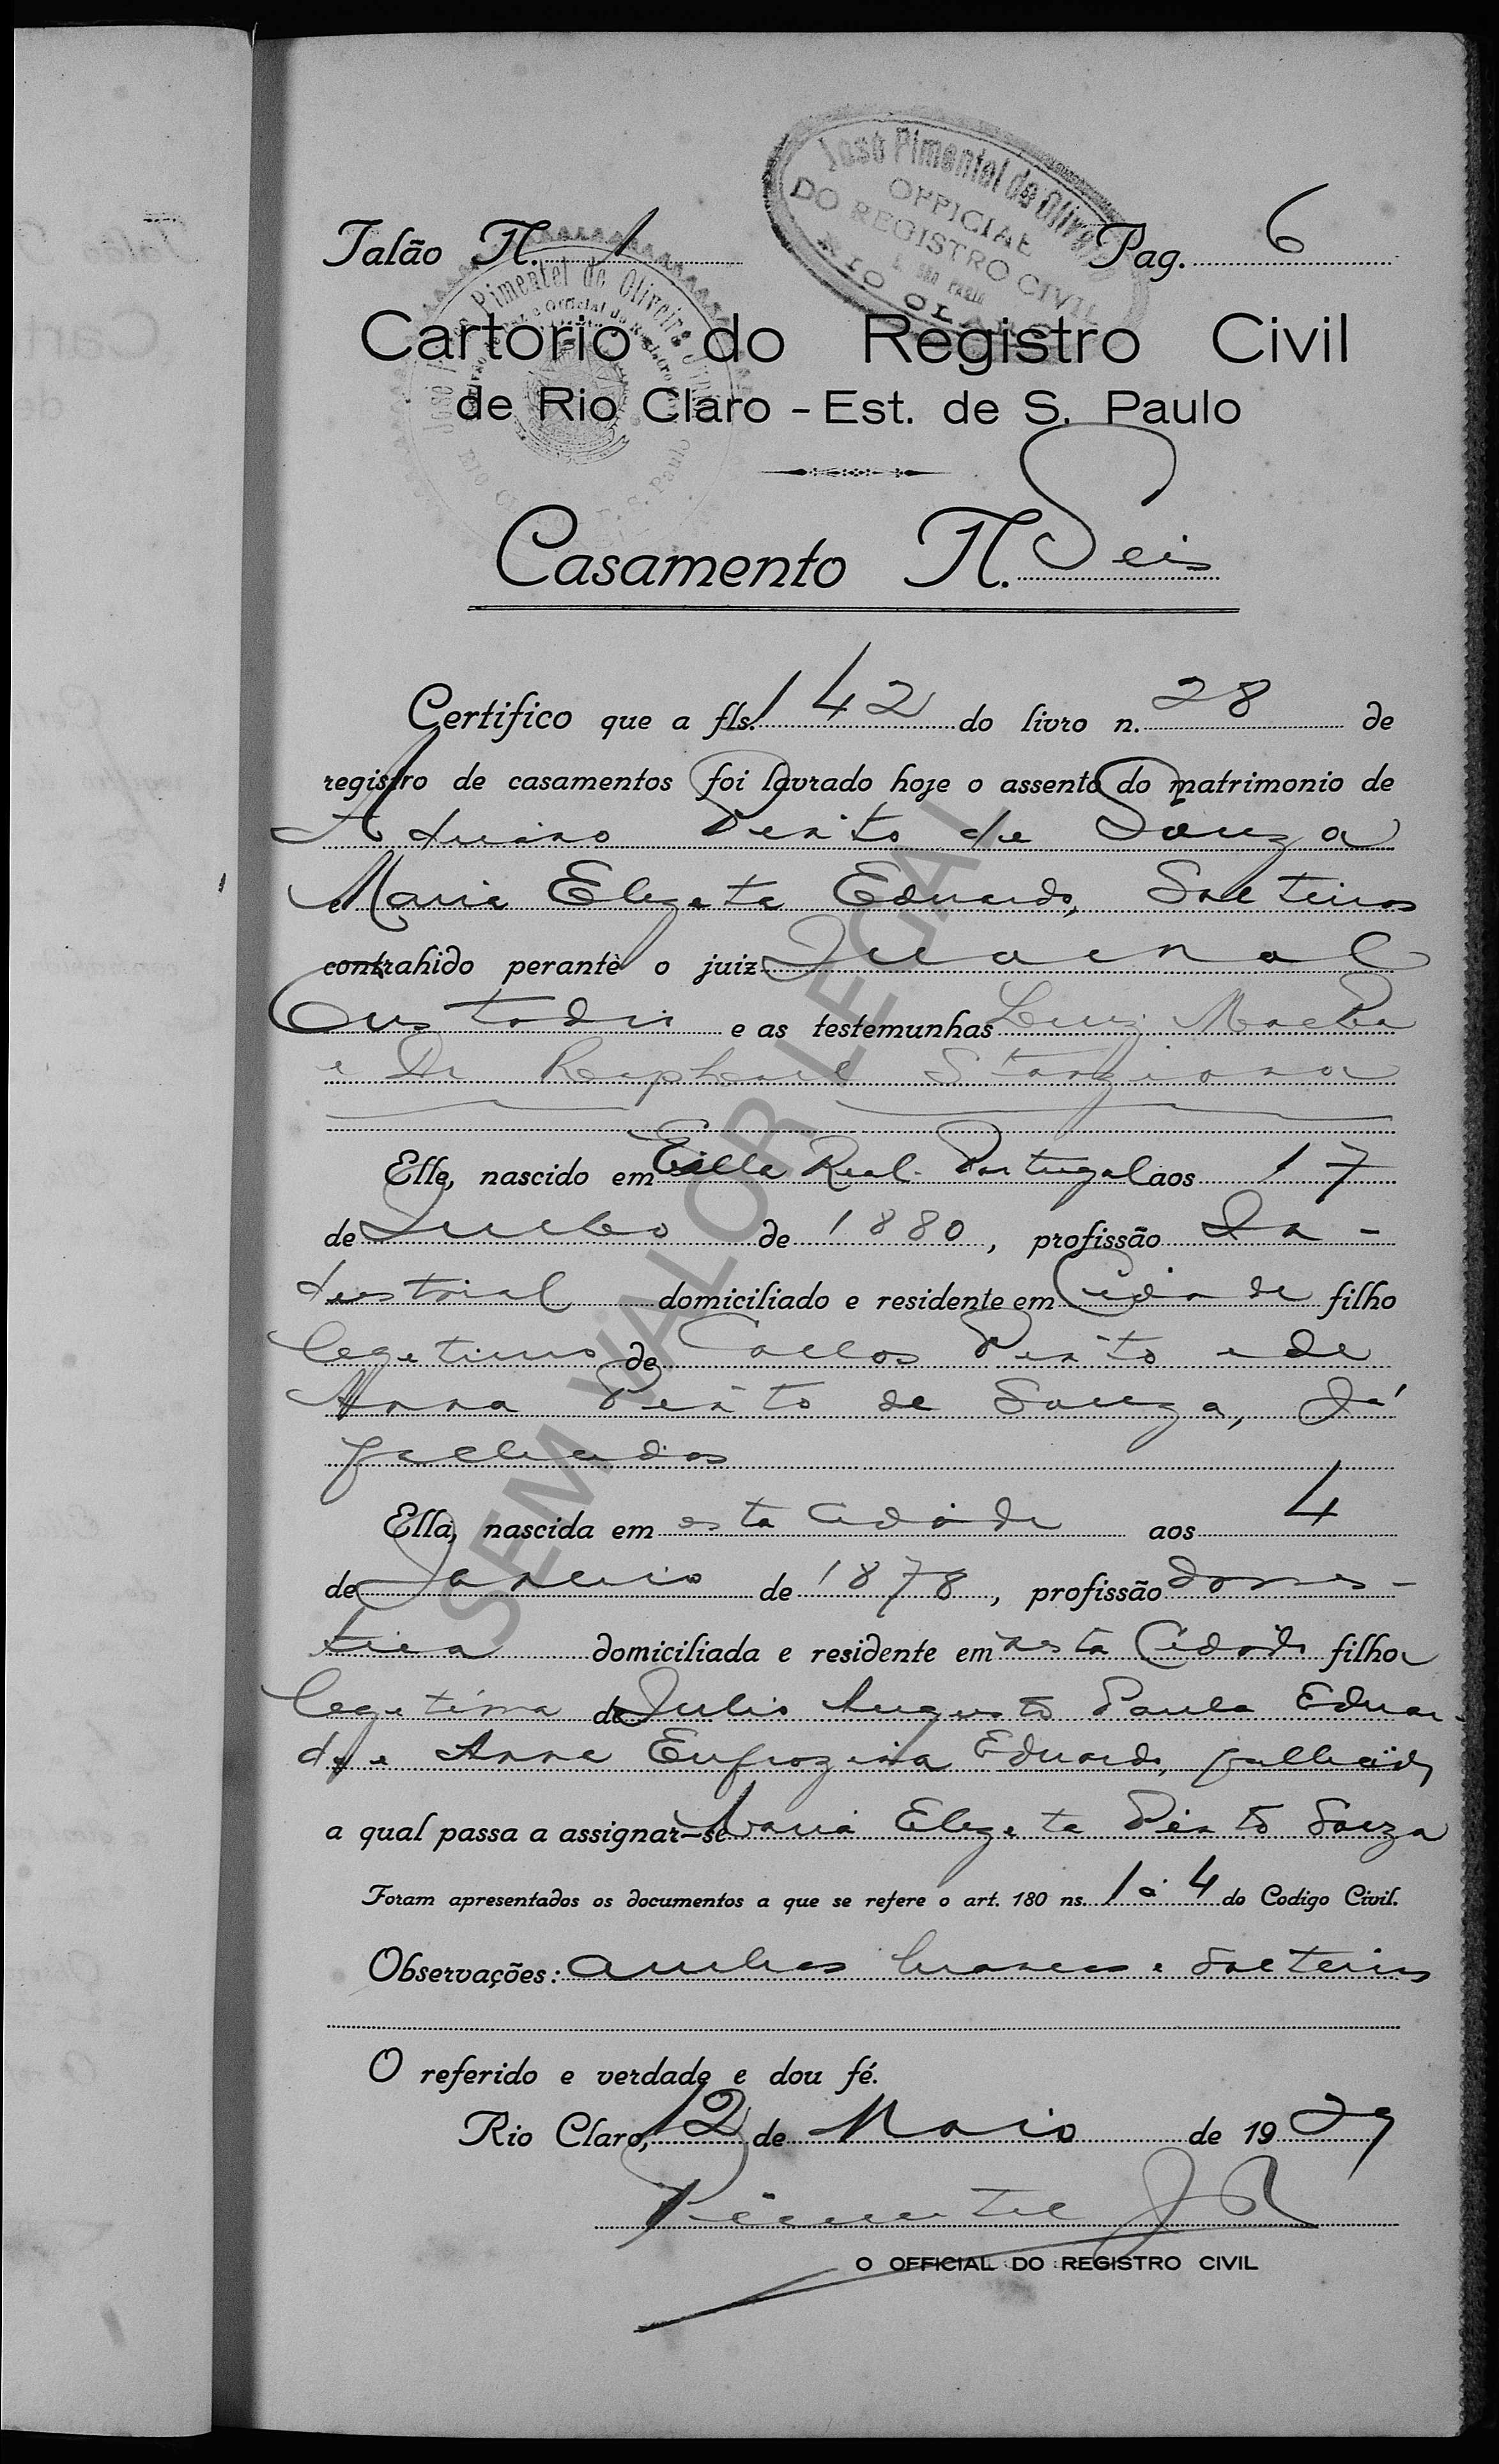 José Pimentel de Oliveira
OFFICIAL
DO REGISTRO CIVIL
RIO CLARO
Talão N. 1 Pag. 6
Pimentel de Oliveira
Cartorio do Registro Civil
de Rio Claro - Est. de S. Paulo
Casamento N. Seis
Certifico que a fls. 142 do livro n. 28 de
registro de casamentos foi lavrado hoje o assento do matrimonio de
Adriano Pinto de Souza
e Maria Elizeta Eduardo, Solteiros
contrahido perante o juiz Juvenal
Custodio e as testemunhas Luiz
e Dr Raphael
Elle, nascido em Villa Real Portugal aos 17
de Julho de 1880, profissão In-
dustrial domiciliado e residente em Cidade filho
legitimo de Carlos Pinto e de
Anna Pinto de Souza, Já
fallecidos
Ella, nascida em esta Cidade aos 4
de Janeiro de 1878, profissão domes-
tica domiciliada e residente em nesta Cidade filha
legitima de Julio Augusto Paula Eduar-
do e Anna Eufrozina Eduardo, fallecidos
a qual passa a assignar-se Maria Elizeta Pinto Souza
Foram apresentados os documentos a que se refere o art. 180 ns. 1 á 4 do Codigo Civil.
Observações: ambos brancos e Solteiros
O referido e verdade e dou fé.
Rio Claro, 12 de Maio de 1939
Pimentel Jr
O OFFICIAL DO REGISTRO CIVIL
SEM VALOR LEGAL